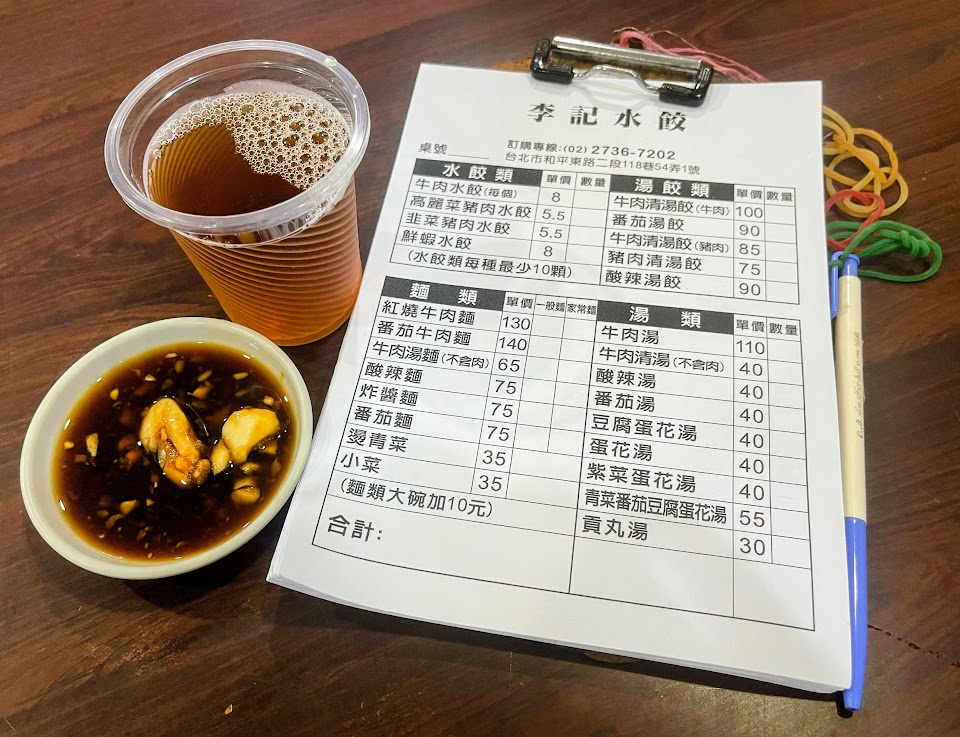 李記水餃
桌號 訂購專線:(02) 2736-7202
台北市和平東路二段118巷54弄1號
水餃類 單價 數量
牛肉水餃(每個) 8
高麗菜豬肉水餃 5.5
韭菜豬肉水餃 5.5
鮮蝦水餃 8
(水餃類每種最少10顆)
湯餃類 單價 數量
牛肉清湯餃(牛肉) 100
番茄湯餃 90
牛肉清湯餃(豬肉) 85
豬肉清湯餃 75
酸辣湯餃 90
麵類 單價 一般麵 家常麵
紅燒牛肉麵 130
番茄牛肉麵 140
牛肉湯麵(不含肉) 65
酸辣麵 75
炸醬麵 75
番茄麵 75
燙青菜 35
小菜 35
(麵類大碗加10元)
合計:
湯類 單價 數量
牛肉湯 110
牛肉清湯(不含肉) 40
酸辣湯 40
番茄湯 40
豆腐蛋花湯 40
蛋花湯 40
紫菜蛋花湯 40
青菜番茄豆腐蛋花湯 55
貢丸湯 30